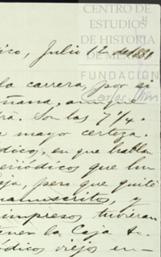 CENTRO DE
ESTUDIOS
DE HISTORIA
DE MÉXICO
FUNDACIÓN
Carlos Slim
ico, Julio 12 de 1891
la carrera, por si
ñana,
rá. Son las 7 1/4.
mayor certeza.
ódico, en que habla
eriódicos que hu
ija, pero que quité
manuscritos, y
impresos tuvieran
ner la Caja
ódicos viejos en-